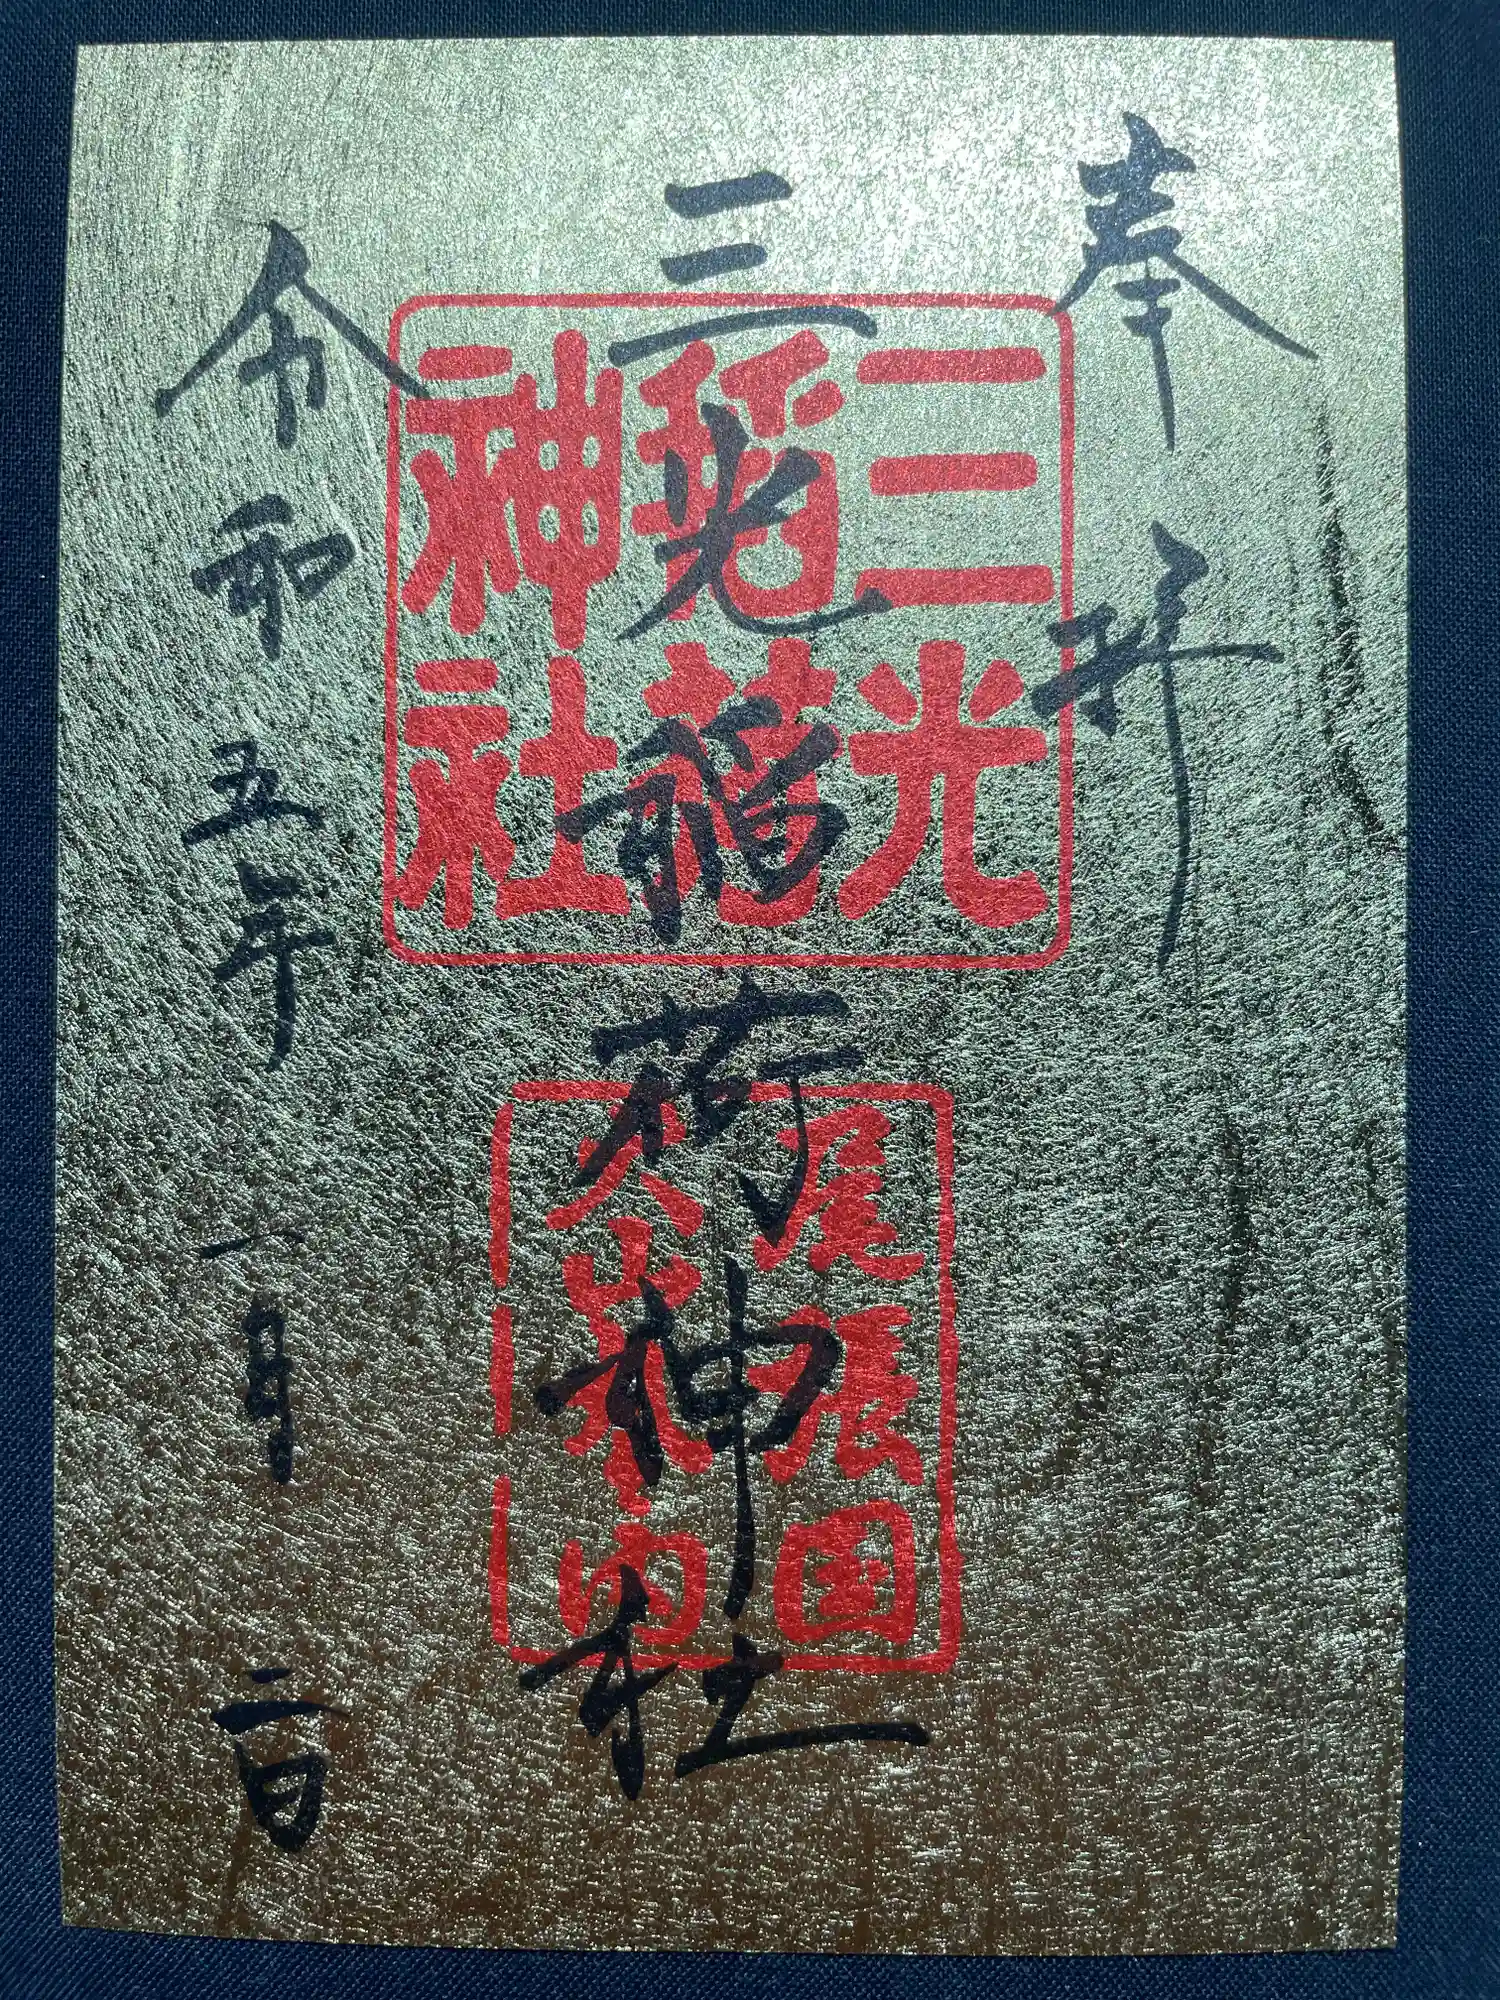 奉拝
三光稲荷神社
令和五年一月二日
三光
稲荷
神社
尾張国
犬山丸の内